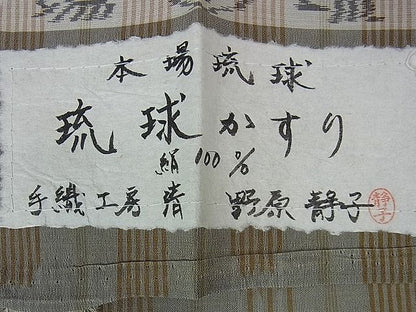 本場琉球
琉球かすり
絹100%
手織工房 啓 野原静子
静子